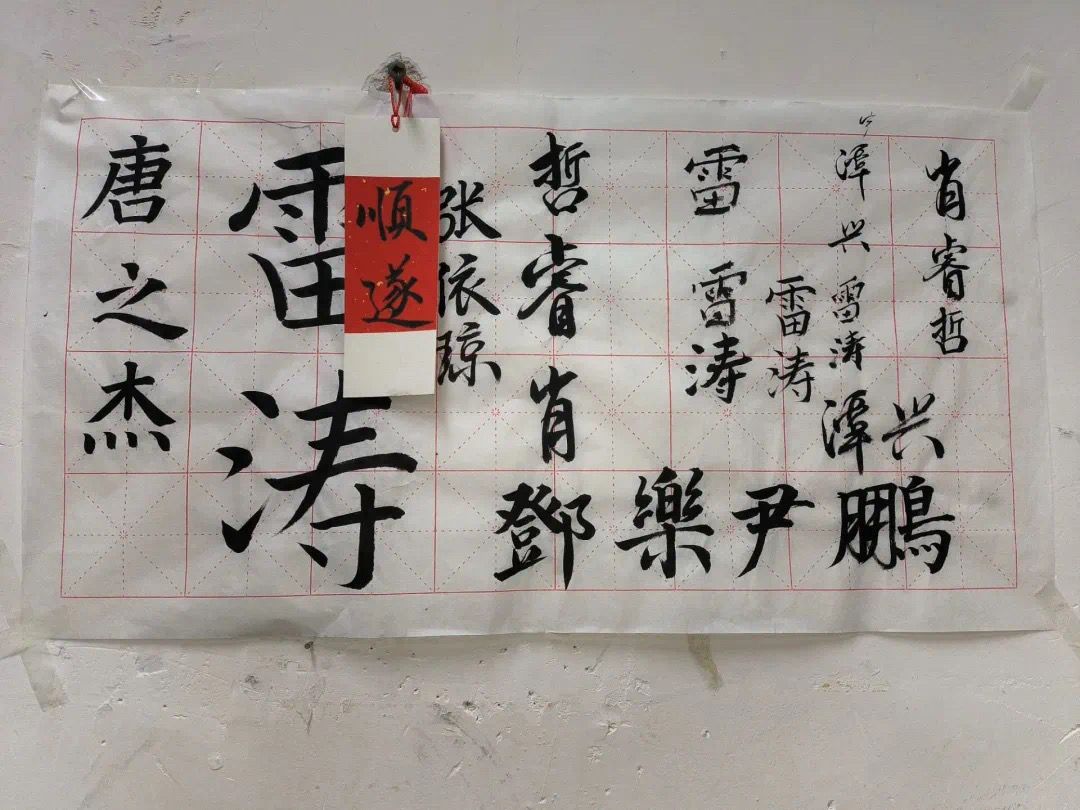 肖睿哲
潭兴
雷涛
潭兴
雷涛
雷
雷涛
哲睿肖
鄧樂尹鵬
张依琼
順遂
雷涛
唐之杰